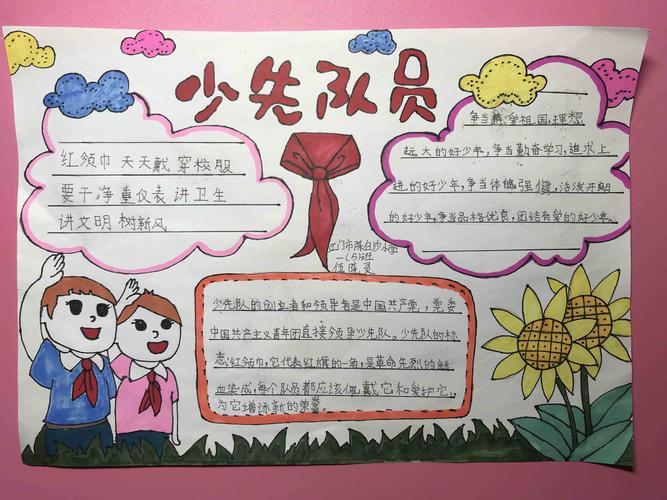 少先队员
红领巾 天天戴 穿校服
要干净 重仪表 讲卫生
讲文明 树新风
争当热爱祖国,理想
远大的好少年,争当勤奋学习,追求上
进的好少年,争当体魄强健,活泼开朗
的好少年,争当品格优良,团结有爱的好少年。
江门市陈白沙小学
一(5)班
伍 灵
少先队的创立者和领导者是中国共产党,党委
中国共产主义青年团直接领导少先队。少先队的标
志:红领巾,它代表红旗的一角,是革命先烈的鲜
血染成,每个队员都应该佩戴它和爱护它,
为它增添新的荣誉